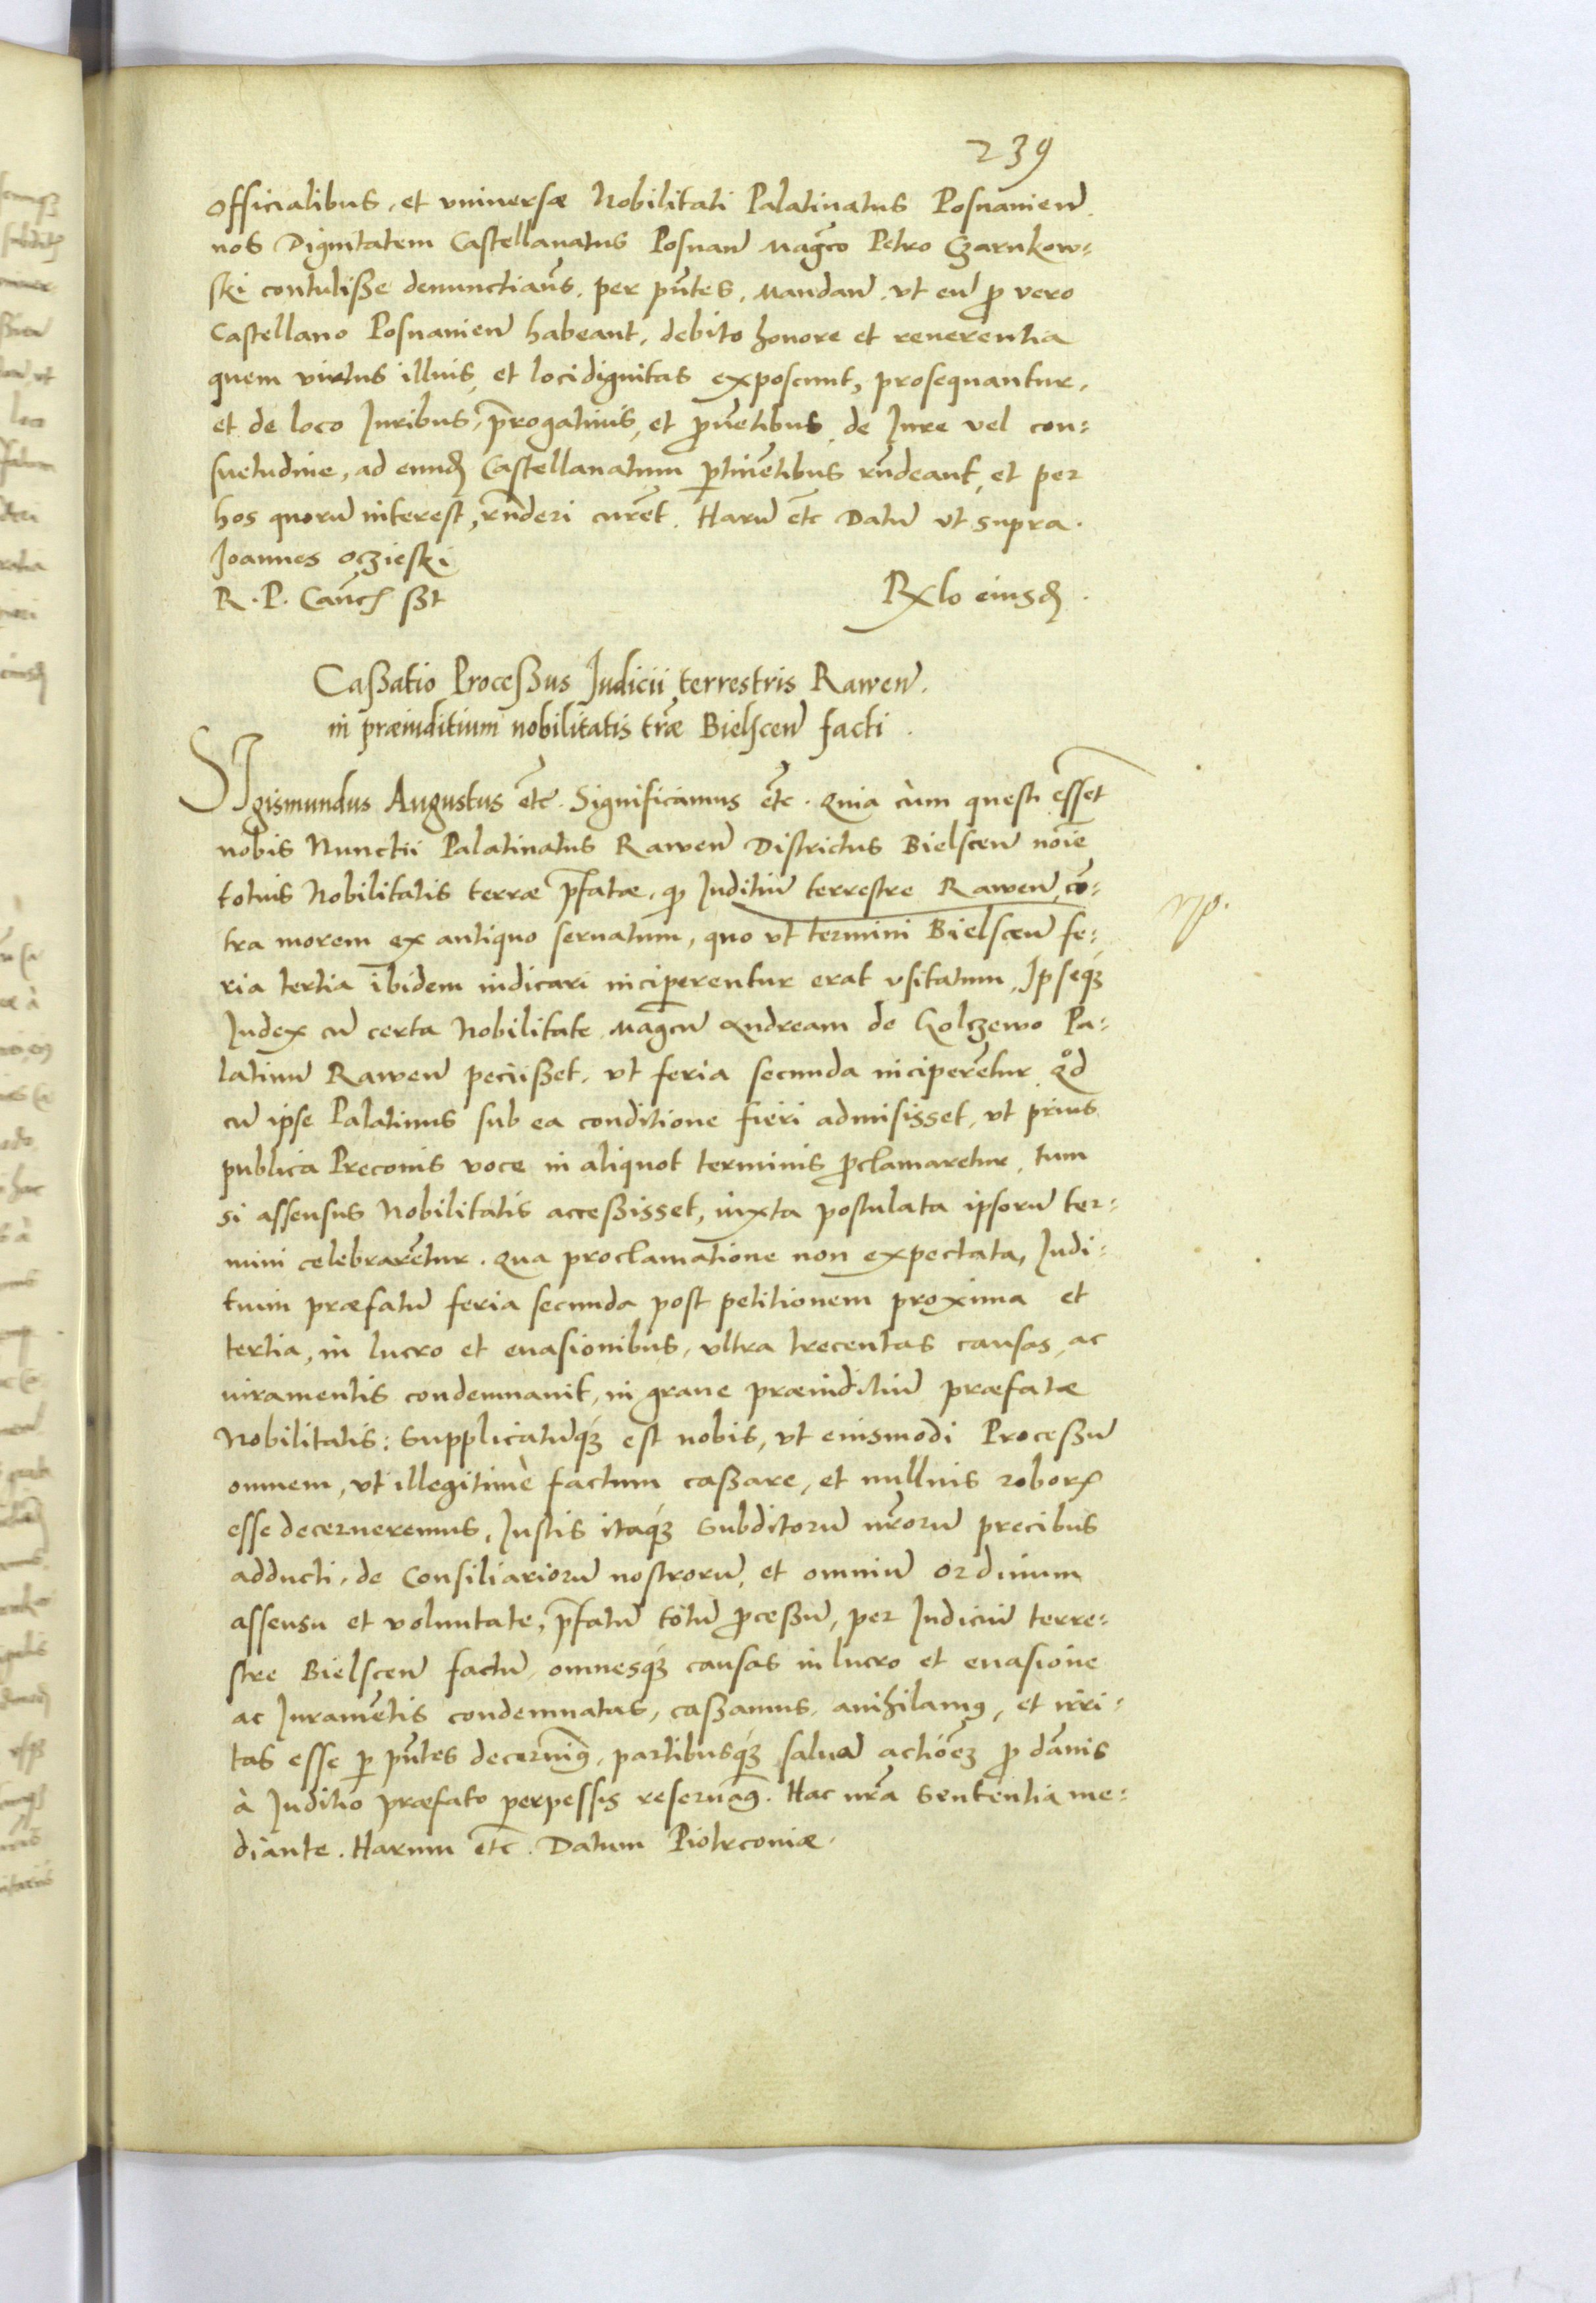 239
Officialibus, et vniuersæ Nobilitati Palatinatus Posnanieñ.
nos Dignitatem Castellanatus Posnañ Mag͞co Petro Czarnkow=
ski contulisse denunctiam̃s. per p̃ntes. Mandañ. vt eũ ꝓ vero
Castellano Posnanieñ habeant, debito honore et reuerentia
quem virtus illius, et loci dignitas exposcunt, prosequantur,
et de loco Iuribus, p̄rogatiuis, et ꝓuẽtibus, de Iure vel con=
suetudine, ad eundẽ Castellanatum ꝑtinẽtibus rñdeant, et per
hos quorũ interest, rñderi curẽt. Harũ et̃c Datũ vt supra.
Joannes Oczieski
R. P. Canc̃ sst
Rx̃lo eiusd̃.
Cassatio Processus Judicii terrestris Raweñ.
in præiuditium nobilitatis tr̃æ Bielsceñ facti.
SIgismundus Augustus et̃c. Significamus et̃c. Quia cùm questi essẽt
nobis Nunctii Palatinatus Raweñ Districtus Bielsceñ noĩe
totius Nobilitatis terræ p̄fatæ, qꝫ Juditiũ terrestre Raweñ, cõ=
tra morem ex antiquo seruatum, quo vt termini Bielsceñ fe=
ria tertia ibidem iudicari inciperentur erat vsitatum, Ipseqꝫ
Judex cũ certa Nobilitate Mag͞cũ Andream de Golczewo Pa=
latinũ Raweñ peciisset, vt feria secunda inciperẽtur. Qd̊
cũ ipse Palatinus sub ea conditione fieri admisisset, vt prius
publica Preconis voce in aliquot terminis ꝓclamaretur, tum
si assensus Nobilitatis accessisset, iuxta postulata ipsorũ ter=
mini celebrarẽtur. Qua proclamatione non expectata, Judi=
tium præfatũ feria secunda post petitionem proxima et
tertia, in lucro et euasionibus, vltra trecentas causas, ac
iuramentis condemnauit, in graue præiuditiũ præfatæ
Nobilitatis: Supplicatũqꝫ est nobis, vt eiusmodi Processũ
omnem, vt illegitimè factum cassare, et nullius robor̃
esse decerneremus, Justis itaqꝫ Subditorũ nr̃orũ precibus
adducti, de Consiliariorũ nostrorũ, et omniũ ordinum
assensu et voluntate, p̄fatũ totũ ꝓcessũ, per Judiciũ terre=
stre Bielsceñ factũ, omnesqꝫ causas in lucro et euasione
ac Juramẽtis condemnatas, cassamus, anihilamꝰ, et irri=
tas esse ꝑ p̃ntes decernimꝰ, partibusqꝫ saluã actiõeꝫ ꝓ dãnis
à Juditio præfato perpessis reseruamꝰ. Hac nr̃a Sententia me=
diante. Harum et̃c. Datum Piotrconiæ.